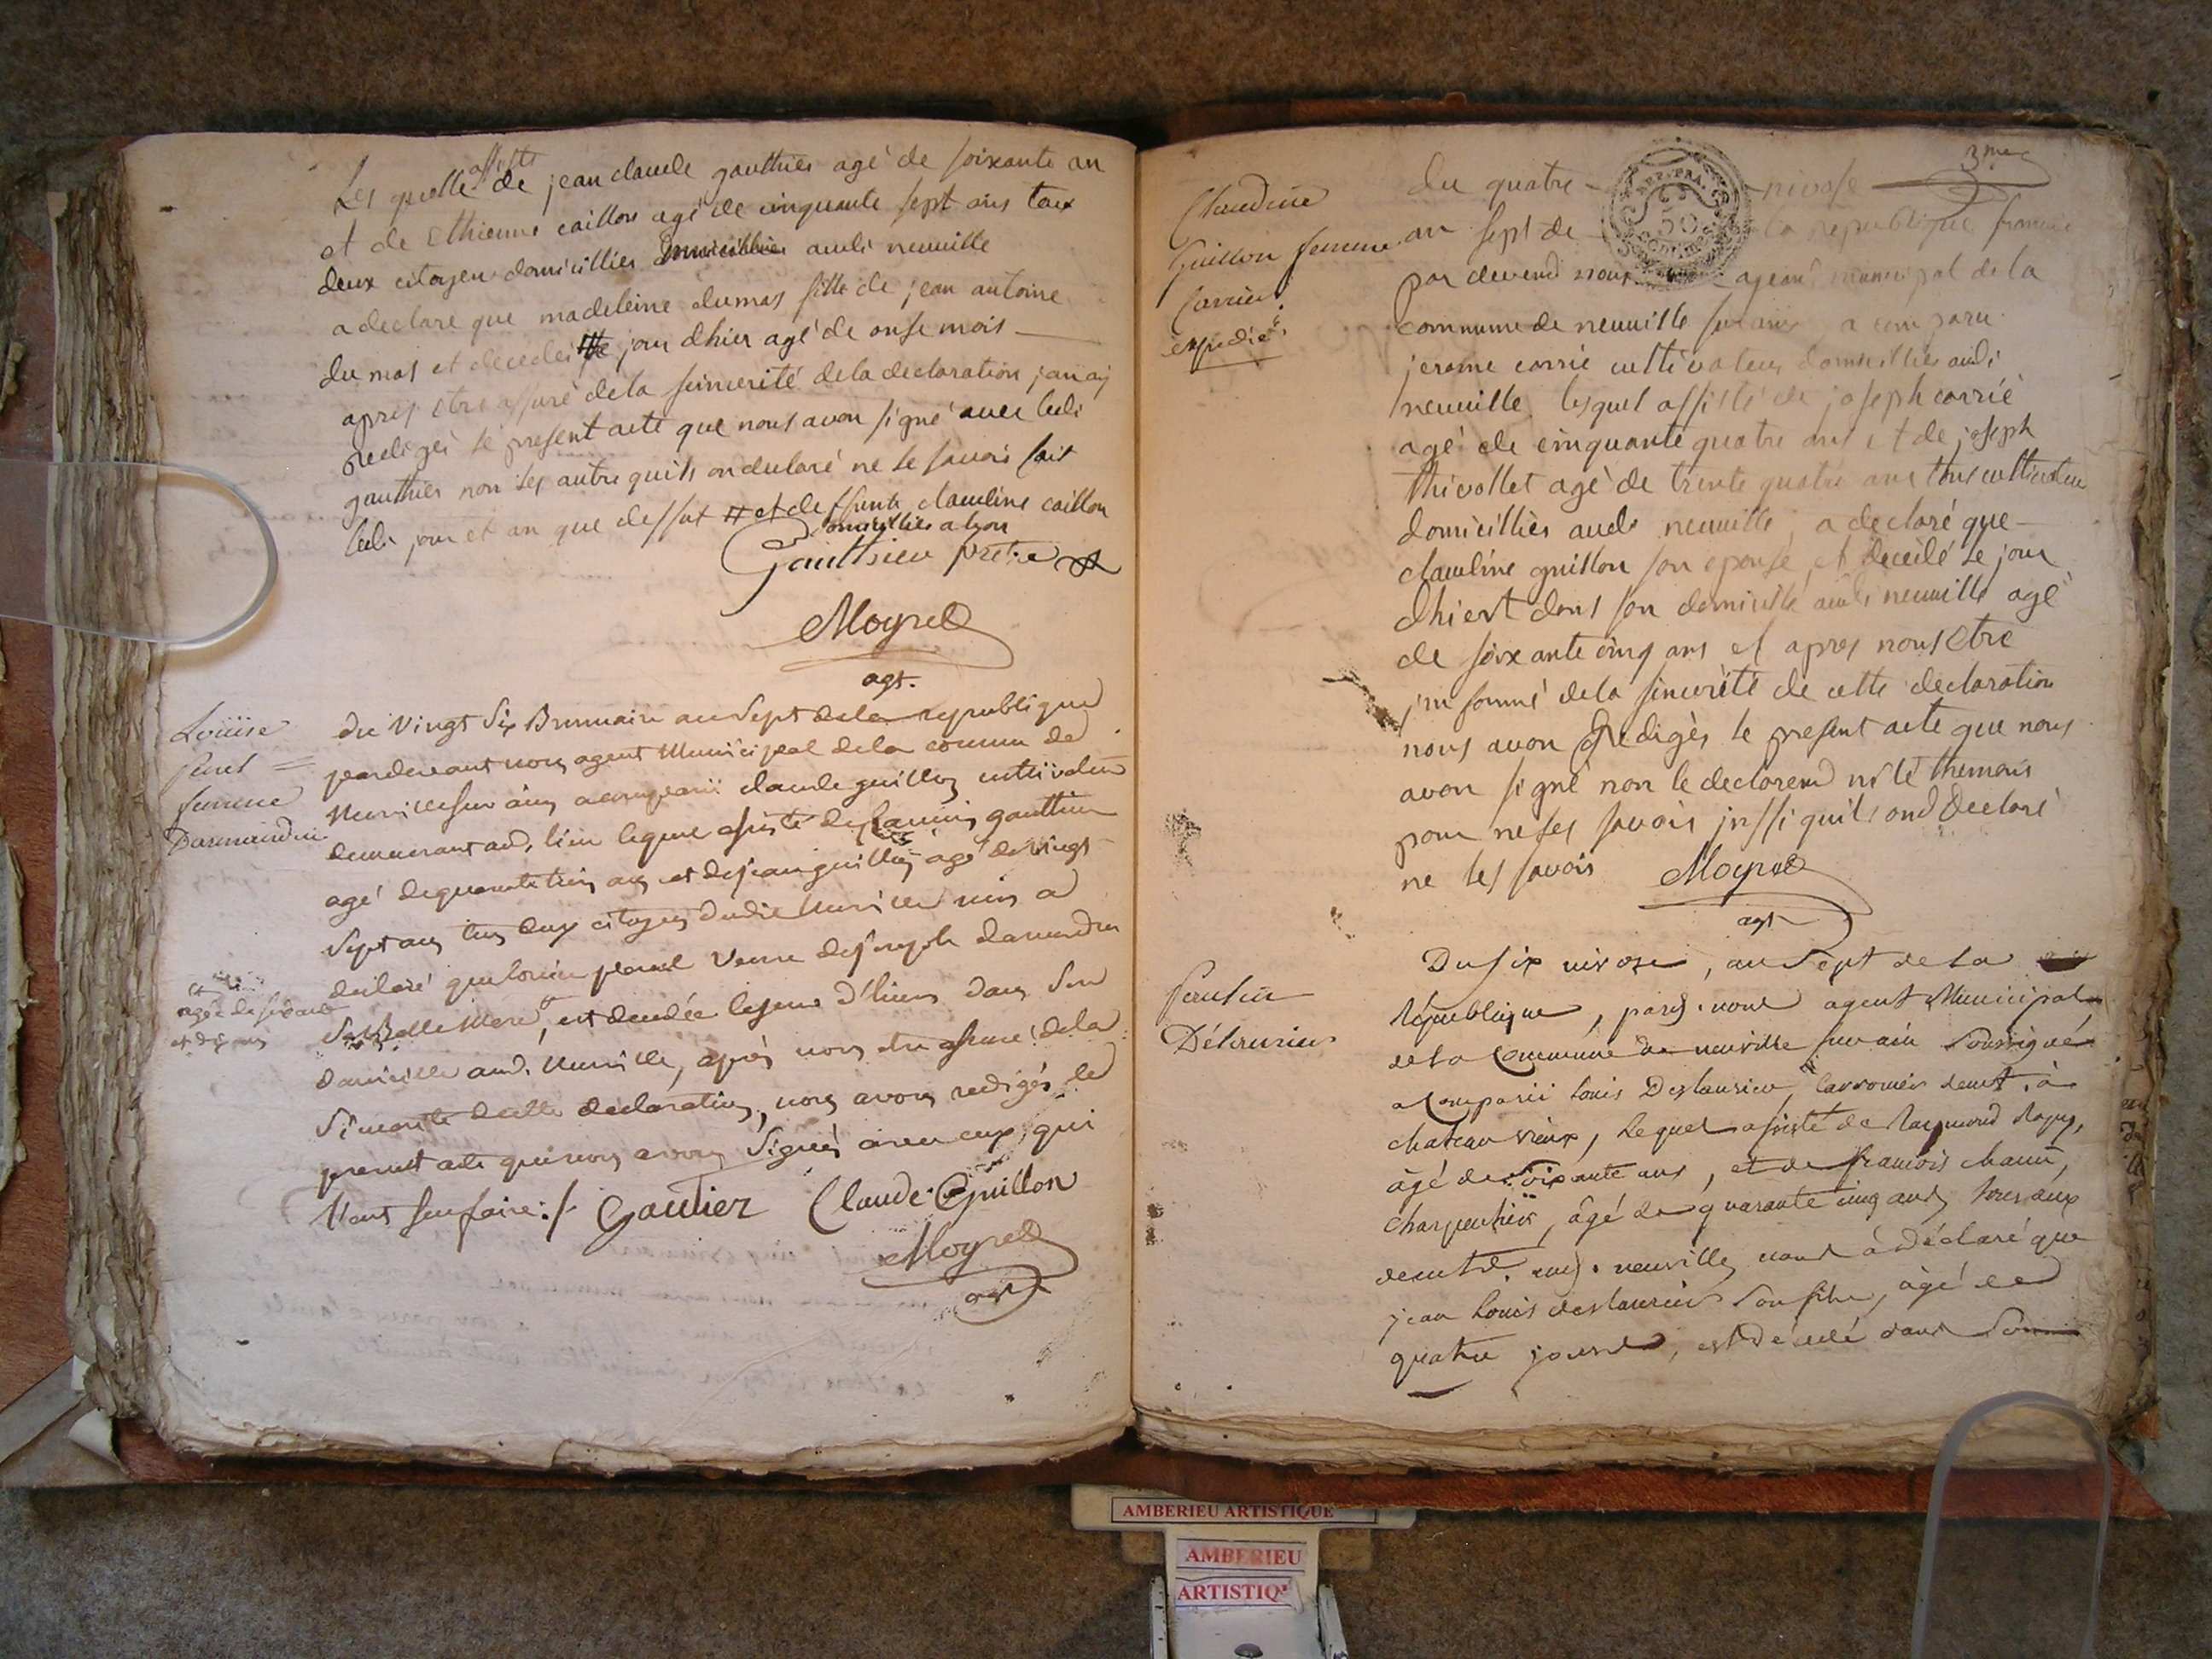 Les quelle assiste de jean claude gauthier agé de soixante an
et de Ethienne caillon agé de cinquante sept ans tous
deux citoyen domicilliés audi neuville
a declaré que madeleine dumas fille de jean antoine
dumas et decedei le jour dhier agé de onse mois
apres etre assuré de la sincerité de la declaration jan ai
redigés le present acte que nous avon signé avec ledi
gauthier non les autre quils on declaré ne le savoir fait
ledi jour et an que dessut # et de ffunte claudine caillon
domicilliés a lyon
Gauthier pretre #
Moyret
agt.
Louise
paul =
femme
Darmandin
du Vingt Six Brumaire an Sept dela republique
pardevant nous agent Municipal dela comune de
Neuville sur ains a comparu claude guillon cultivateur
demeurant aud. lieu lequel assisté de gauthier
agé de quarante trois ans et de jean guillon agé de vingt
Sept ans tous deux citoyens dudit Neuville nous a
declaré que Louise paul Veuve de joseph darmandin
Sa Belle Mere, est decedée le jour d'hier dans Son
agée de soixante
et dix ans
Domicille aud. Neuville, après nous etre assuré de la
Sincerité de cette declaration, nous avons redigés le
present acte que nous avons Signés avec eux, qui
l'ont Seu faire ./. Gautier Claude Guillon
Moyret
agt
3me
Claudine
Guillon femme
Carrier
expedié
du quatre nivose
an sept de la republique francaise
par devend nous agent municipal de la
commune de neuville sur ains a comparu
jerome carrié cultivateur domicilliés audi
neuville lesquel assisté de joseph carrié
agé de cinquante quatre ans et de joseph
thivollet agé de trente quatre ans tous cultivateur
domicilliés audi neuville, a declaré que
claudine guillon son epouse, et decedé le jour
dhiert dans son domicille audi neuville agé
de soixante cinq ans et apres nous etre
jnformé de la sincerité de cette declaration
nous avon Redigés le present acte que nous
avon signé non le declarend ni lé themoins
pour ne les savoir jnssi quils ond declaré
ne les savoir Moyret
agt
Du six nivose, an Sept de la
République, pard. nous agent Municipal
de la Commune de neuville sur ain Soussigné
a Comparu Louis Deslaurier, Carronier demt. à
chateau vieux, Lequel assisté de Raymond
âgé de soixante ans, et de francois chanu,
charpentier, âgé de quarante cinq ans, tous deux
aud. neuville, nous à déclaré que
jean Louis deslaurier Son fils, âgé de
quatre jours, est décedé dans Son
AMBERIEU ARTISTIQUE
AMBERIEU
ARTISTIQ